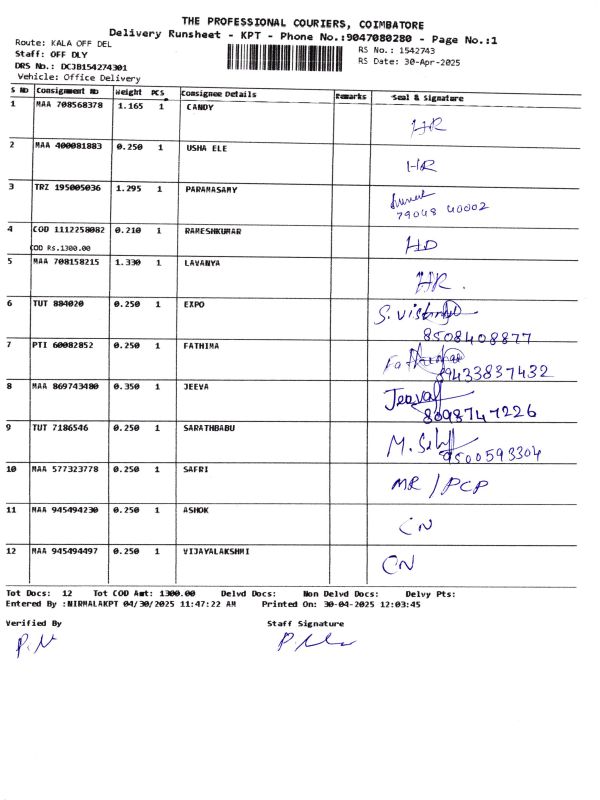 THE PROFESSIONAL COURIERS, COIMBATORE
Delivery Runsheet - KPT - Phone No.:9047080280 - Page No.:1
Route: KALA OFF DEL
RS No.: 1542743
Staff: OFF DLY
RS Date: 30-Apr-2025
DRS No.: DCJB154274301
Vehicle: Office Delivery
S NO Consignment No Weight PCS Consignee Details Remarks Seal & Signature
1 MAA 708568378 1.165 1 CANDY HR
2 MAA 400081883 0.250 1 USHA ELE HR
3 TRZ 195005036 1.295 1 PARAMASAMY
79048 40002
4 COD 1112258082 0.210 1 RAMESHKUMAR HD
COD Rs.1300.00
5 MAA 708158215 1.330 1 LAVANYA HR.
6 TUT 884020 0.250 1 EXPO S.
8508408877
7 PTI 60082852 0.250 1 FATHIMA
89433837432
8 MAA 869743480 0.350 1 JEEVA Jeeva
8098747226
9 TUT 7186546 0.250 1 SARATHBABU M.
9500593304
10 MAA 577323778 0.250 1 SAFRI MR / PCP
11 MAA 945494230 0.250 1 ASHOK CN
12 MAA 945494497 0.250 1 VIJAYALAKSHMI CN
Tot Docs: 12 Tot COD Amt: 1300.00 Delvd Docs: Non Delvd Docs: Delvy Pts:
Entered By :NIRMALAKPT 04/30/2025 11:47:22 AM Printed On: 30-04-2025 12:03:45
Verified By Staff Signature